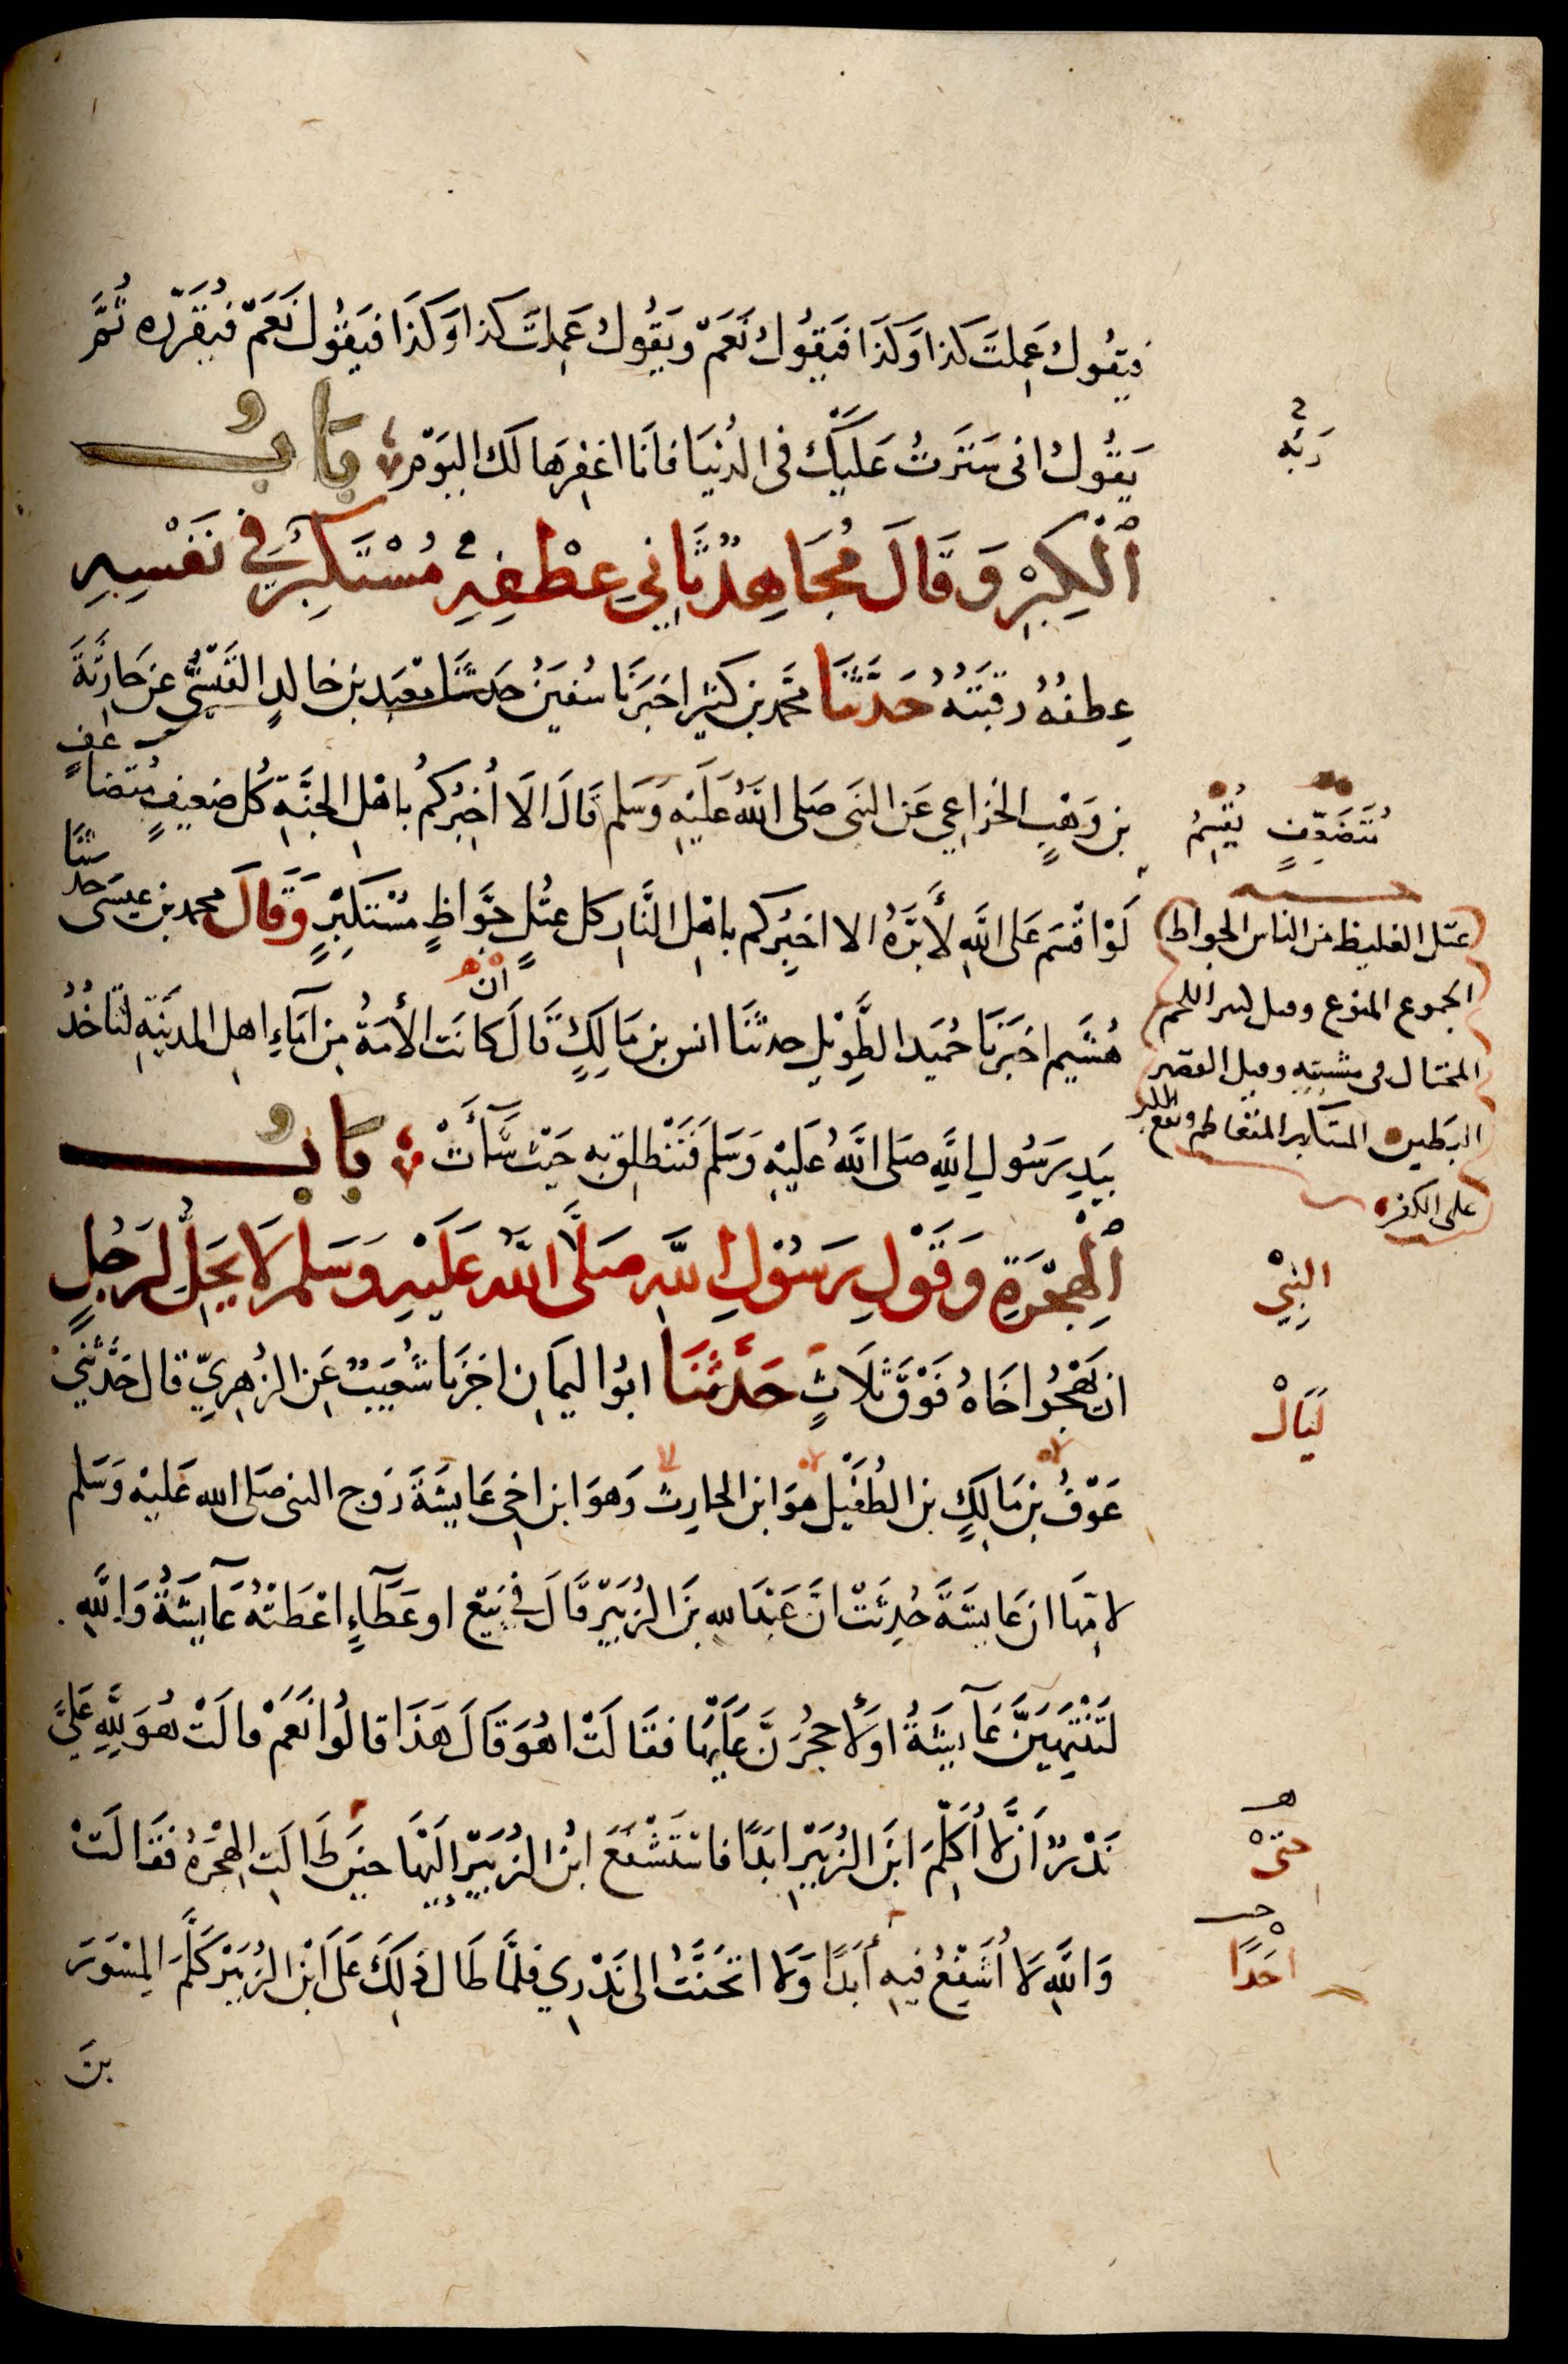 فيقُولُ عَمِلتَ كذا وَكَذَا فَيَقُولُ نَعَمْ وَيَقُولُ عَمِلتَ كذا وَكَذَا فيَقُولُ نَعَمْ فيُقَرِّره ثُمَّ
يَقُولُ انى سَتَرتُ عَلَيْكَ فى الدُنيَا فانَا اغفِرهَا لَكَ اليَوْم بَابُ
اَلْكِبْرِ وَقَالَ مُجَاهِدٌ ثَانِي عِطْفِهِ مُسْتَكْبِرٌ فِي نَفْسِهِ
عِطفُهُ رقبَتهُ حَدَّثنَا محمد بن كثير اخبَرَنَا سُفين حَدثنَا مَعْبَد بن خالدٍ القَيْسِيُّ عن حَارثَةَ
بن وَهْبٍ الخزاعِي عَن النبى صَلى اللهُ عَلَيْهِ وَسَلم قَالَ الَا اُخبِرُكمُ باهْلِ الجنَّةِ كُل ضعِيفٍ مُتضاعفٍ
لَوْ اقْسَم عَلى اللهِ لأبَرَّهُ الا اخبِرُكم باهْلِ النَّارِ كل عتُلٍ جَوَّاظٍ مُسْتَكبِرٍ وَقالَ محمد بن عيسَى حدثنا
هُشَيم اخبَرَنَا حُمَيد الطَّوِيْلِ حدثنَا انس بن مَا لِكٍ قَالَ ان كانَت الأمَةُ مِن اِمَآءِ اهلِ المدينَةِ لتَاخُذُ
بِيَدِ رَسُولِ اللهِ صَلى اللهُ عَلَيْهِ وَسَلم فَتَنْطلِق بِهِ حَيْث شَآءَتْ بَابُ
اَلْهِجْرَةِ وَقَوْلِ رَسُوْلِ اللهِ صَلَّى اللهُ عَلَيْهِ وَسَلمَ لَا يَحِلُّ لِرَجُلٍ
ان يَهْجُرَ اخَاهُ فَوْقَ ثَلَاثٍ حَدَّثنَا ابُوا ليمَان اخبَرنَا شُعَيبٌ عَن الزُهرِيِّ قال حَدَّثنِي
عَوْفُ بن مَالِكٍ بن الطُفَيْلِ هوَ ابن الحارِث وَهوَ ابن اخى عَايشَةَ زَوج النبى صَلى الله عَليهْ وَسَلم
لامِّهَا ان عَايشَةَ حُدِثَتْ انَّ عَبْدَ اللهِ بنَ الزُبَيْر قَالَ فى بَيْع او عَطَآءٍ اعْطَتْهُ عَآيشَةُ وَاللهِ
لَتَنْتَهِيَنَّ عَآيشَةُ اوْ لأحجُرَنَّ عَلَيْهَا فقَالَتْ اهُوَ قَالَ هَذَا قالُوا نَعَمْ قالَتْ هُوَ للهِ عَلَيَّ
نَذْرٌ اَنْ لَا اُكَلِّمَ ابنَ الزُبَيْرِ ابدًا فاسْتَشْفَعَ ابْنُ الزُبَيْرِ اِلَيْهَا حينَ طَالَت الهِجْرَةُ فقَالَتْ
وَاللهِ لَا اُشَفِّعُ فيهِ أبَدًا وَلَا اتحَنَّثُ الى نَذْرِي فلمَّا طَالَ ذلِكَ عَلَى ابْنِ الزُبَيْرِ كَلَّمَ المِسْوَرَ
بنَ
رَبّه
مُتَضَعِّفٍ يُقْسِمُ
عتل الغليظ من الناس الجواظ
الجموع المنوع وقيل كثير اللحم
المختال فى مشيته وقيل القصير
البطين المتكبر المتعاظم
على الكفر
النبِيْ
لَيَالْ
حتىْ
احَدًا